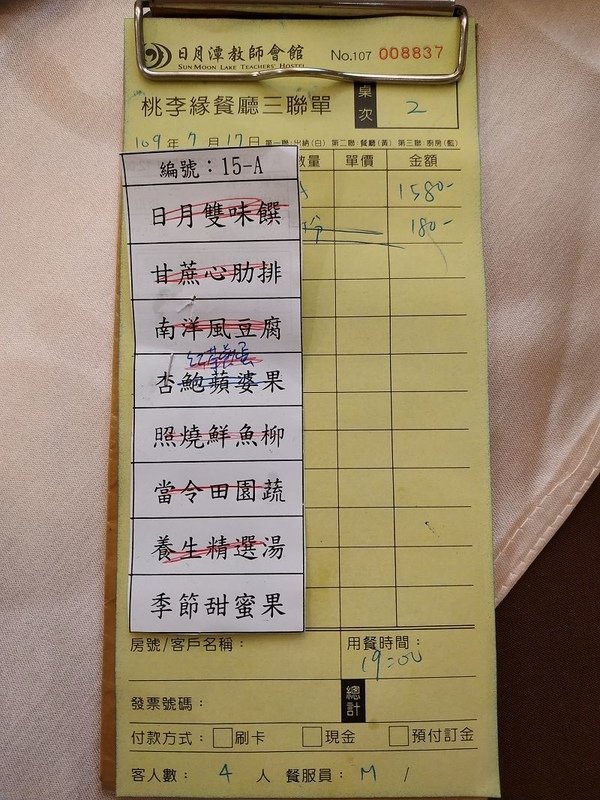 日月潭教師會館
SUN MOON LAKE TEACHERS' HOSTEL
No.107 008837
桃李緣餐廳三聯單
桌次 2
109年7月17日 第一聯:出納(白) 第二聯:餐廳(黃) 第三聯:廚房(藍)
數量 單價 金額
1580-
180-
編號：15-A
日月雙味饌
甘蔗心肋排
南洋風豆腐
杏鮑蘋婆果
照燒鮮魚柳
當令田園蔬
養生精選湯
季節甜蜜果
房號/客戶名稱：
用餐時間：
19:00
發票號碼：
總計
付款方式：□刷卡 □現金 □預付訂金
客人數：4人 餐服員：M /